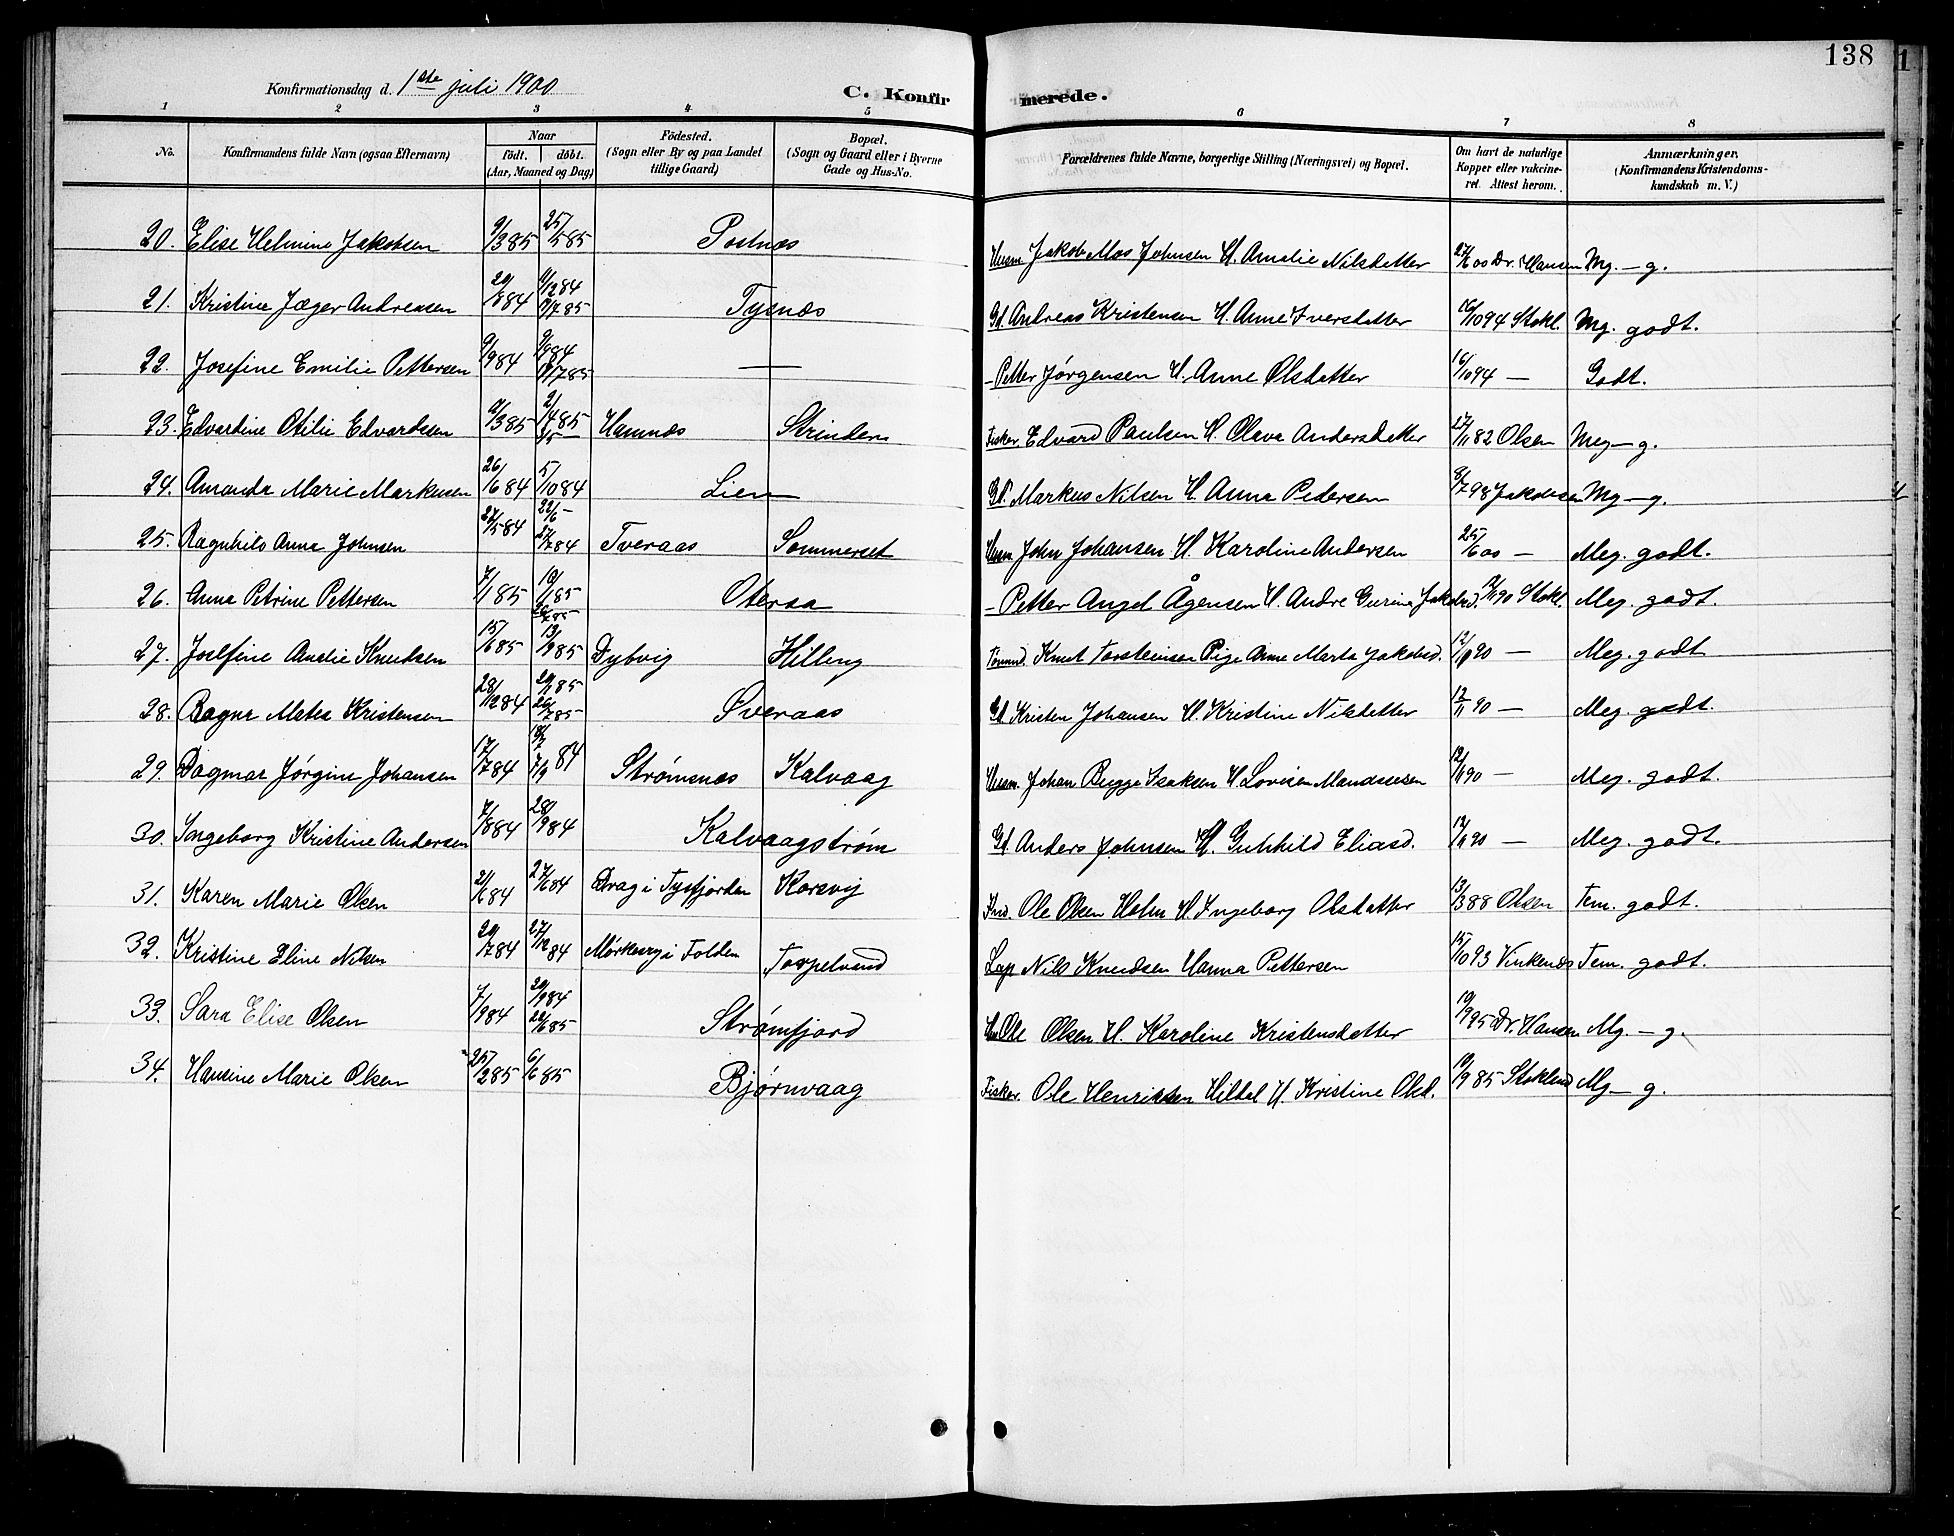 138
Konfirmationsdag d. 1ste juli 1900
C. Konfirmerede.
1 2 3 4 5 6 7 8
No. Konfirmandens fulde Navn (ogsaa Efternavn) Naar födt. döbt. (Aar, Maaned og Dag) Födested. (Sogn eller By og paa Landet tillige Gaard) Bopæl. (Sogn og Gaard eller i Byerne Gade og Hus-No. Forældrenes fulde Navne, borgerlige Stilling (Næringsvei) og Bopæl. Om havt de naturlige Kopper eller vakcineret. Attest herom. Anmærkninger. (Konfirmandens Kristendomskundskab m. V.)
20. Elise Helmine Jakobsen 9/3 85 25/5 85 Postnæs Husm Jakob Mos Johnsen H. Amalie Nilsdatter 27/6 00 Dr. Hansen Mg. - g.
21. Kristine Jæger Andreasen 29/8 84 Tysnæs Gd. Andreas Kristensen H. Anne Iversdatter 16/10 94 Stokl. Mg. godt.
22. Josefine Emilie Pettersen 9/9 84 — - Petter Jørgensen H. Anne Olsdatter 16/10 94 — Godt.
23. Edvardine Otilie Edvardsen 2/4 85 Hamnæs Strinden Fisker Edvard Paulsen H. Olava Andersdatter 27/11 82 Olsen Meg - g.
24. Amanda Marie Markusen 26/6 84 5/10 84 Lien Gd. Markus Nilsen H. Anna Pedersen 8/7 98 Jakobsen Mg - g.
25. Ragnhild Anna Johnsen 27/5 84 22/6 - 27/7 84 Tveraas Sommerset Husm John Johansen H. Karoline Andersen 25/6 00 — Meg. godt.
26. Anna Petrine Pettersen 7/1 85 19/1 85 Oteraa - Petter Angel Ågensen H. Andre Gurine Jakobsd. 12/11 90 Stokl. Meg. godt.
27. Josefine Amalie Knudsen 15/6 85 13/9 85 Dybvig Hilling Tømmd. Knut Torsteinsen Pige Anne Marta Jakobsd. 12/11 90 — Meg. godt
28. Ragna Matea Kristensen 28/12 84 26/7 85 Sveraas Gd. Kristen Johansen H. Kristine Nilsdatter 12/11 90 — Meg. godt.
29. Dagmar Jørgine Johansen 17/7 84 7/9 84 Strømsnæs Kalvaag Husm. Johan Bugge Isaksen H. Lovise Mandssesen 12/11 90 — Meg. godt.
30. Ingeborg Kristine Andersen 7/8 84 28/9 84 Kalvaagstrøm Gd. Anders Johnsen H. Gunhild Eliasd. 12/11 90 — Meg. godt.
31. Karen Marie Olsen 21/6 84 27/6 84 Drag i Tysfjorden Korsvig Ind. Ole Olsen Holm H. Ingeborg Olsdatter 13/3 88 Olsen Tem. godt.
32. Kristine Eline Nilsen 29/7 84 27/12 84 Mørkesvig i Folden Torpelvand Lap Nils Knudsen Hanna Pettersen 15/10 93 Vinkenæs Tem. godt.
33. Sara Elise Olsen 7/9 84 29/9 84 22/6 85 Strømfjord Ole Olsen H. Karoline Kristensdatter 19/9 95 Dr. Hansen Mg. - g.
34. Hansine Marie Olsen 25/2 85 6/6 85 Bjørnvaag Fisker. Ole Henriksen Hildal H. Kristine Olsd. 19/9 85 Stoklund Mg - g.